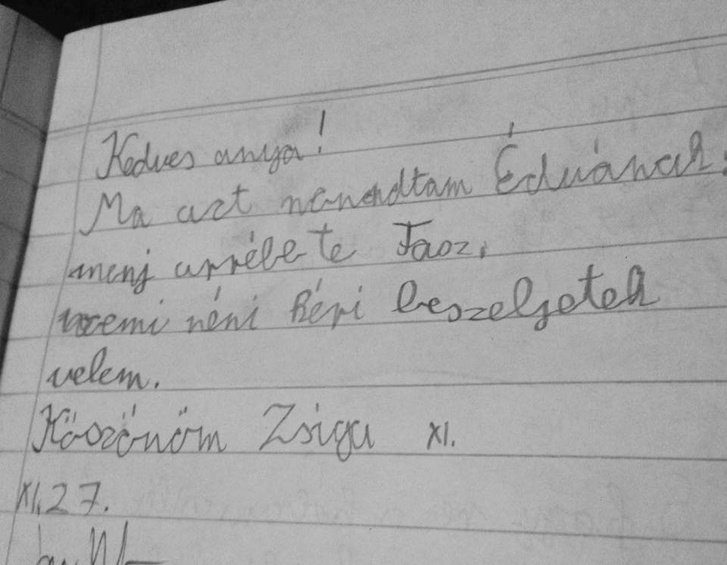 Kedves anya!
Ma azt mondtam Éduának:
menj arrébb te Taoz,
noemi néni kéri beszeljetek
velem.
Köszönöm Zsiga XI.
XI.27.